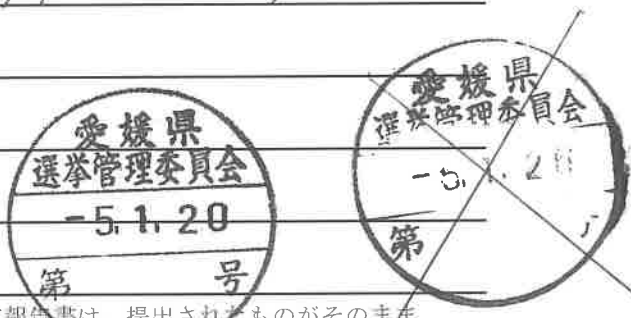 愛媛県
選挙管理委員会
-5.1.20
第 号
愛媛県
選挙管理委員会
-5.1.20
第
報告書は、提出されたものがそのまま